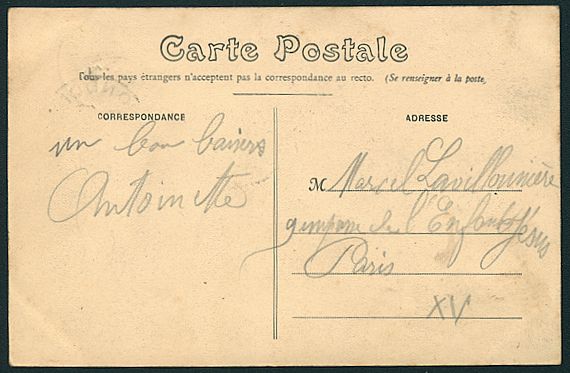 Carte Postale
Tous les pays étrangers n'acceptent pas la correspondance au recto. (Se renseigner à la poste)
CORRESPONDANCE
un bon baisers
Antoinette
ADRESSE
M Marcel Lavillonnière
de l'Enfant Jésus
Paris
XV